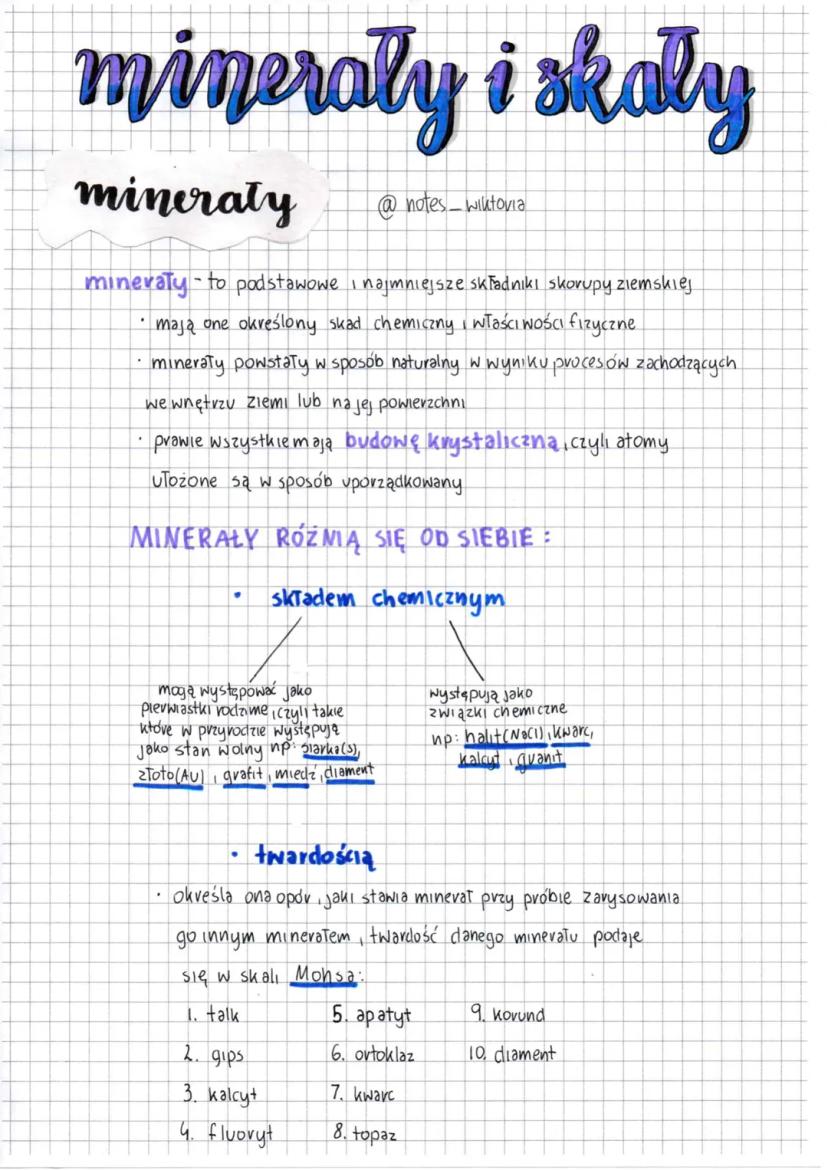 minerały i skały
minerały
@ notes_wiktoria
minerały - to podstawowe i najmniejsze składniki skorupy ziemskiej
• mają one określony skad chemiczny i właściwości fizyczne
• minerały powstały w sposób naturalny w wyniku procesów zachodzących
we wnętrzu ziemi lub na jej powierzchni
• prawie wszystkie mają budowę krystaliczną, czyli atomy
ułożone są w sposób uporządkowany
MINERAŁY RÓŻNIĄ SIĘ OD SIEBIE:
• składem chemicznym
mogą występować jako
pierwiastki rodzime, czyli takie
które w przyrodzie występują
jako stan wolny np: siarka(s),
złoto(Au), grafit, miedź, diament
występują jako
związki chemiczne
np: halit(NaCl), kwarc,
kalcyt, granit
• twardością
• określa ona opór, jaki stawia minerał przy próbie zarysowania
go innym minerałem, twardość danego minerału podaje
się w skali Mohsa:
1. talk
2. gips
3. kalcyt
4. fluoryt
5. apatyt
6. ortoklaz
7. kwarc
8. topaz
9. korund
10. diament